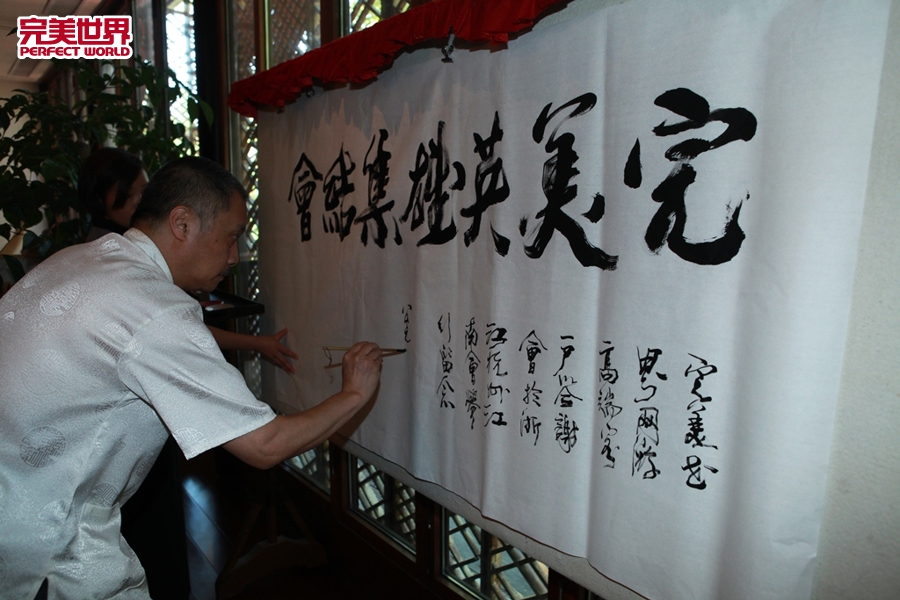 完美世界
PERFECT WORLD
完美英雄集結會
完美世
界网游
高端客
户答謝
會於浙
江杭州江
南會舉
行留念